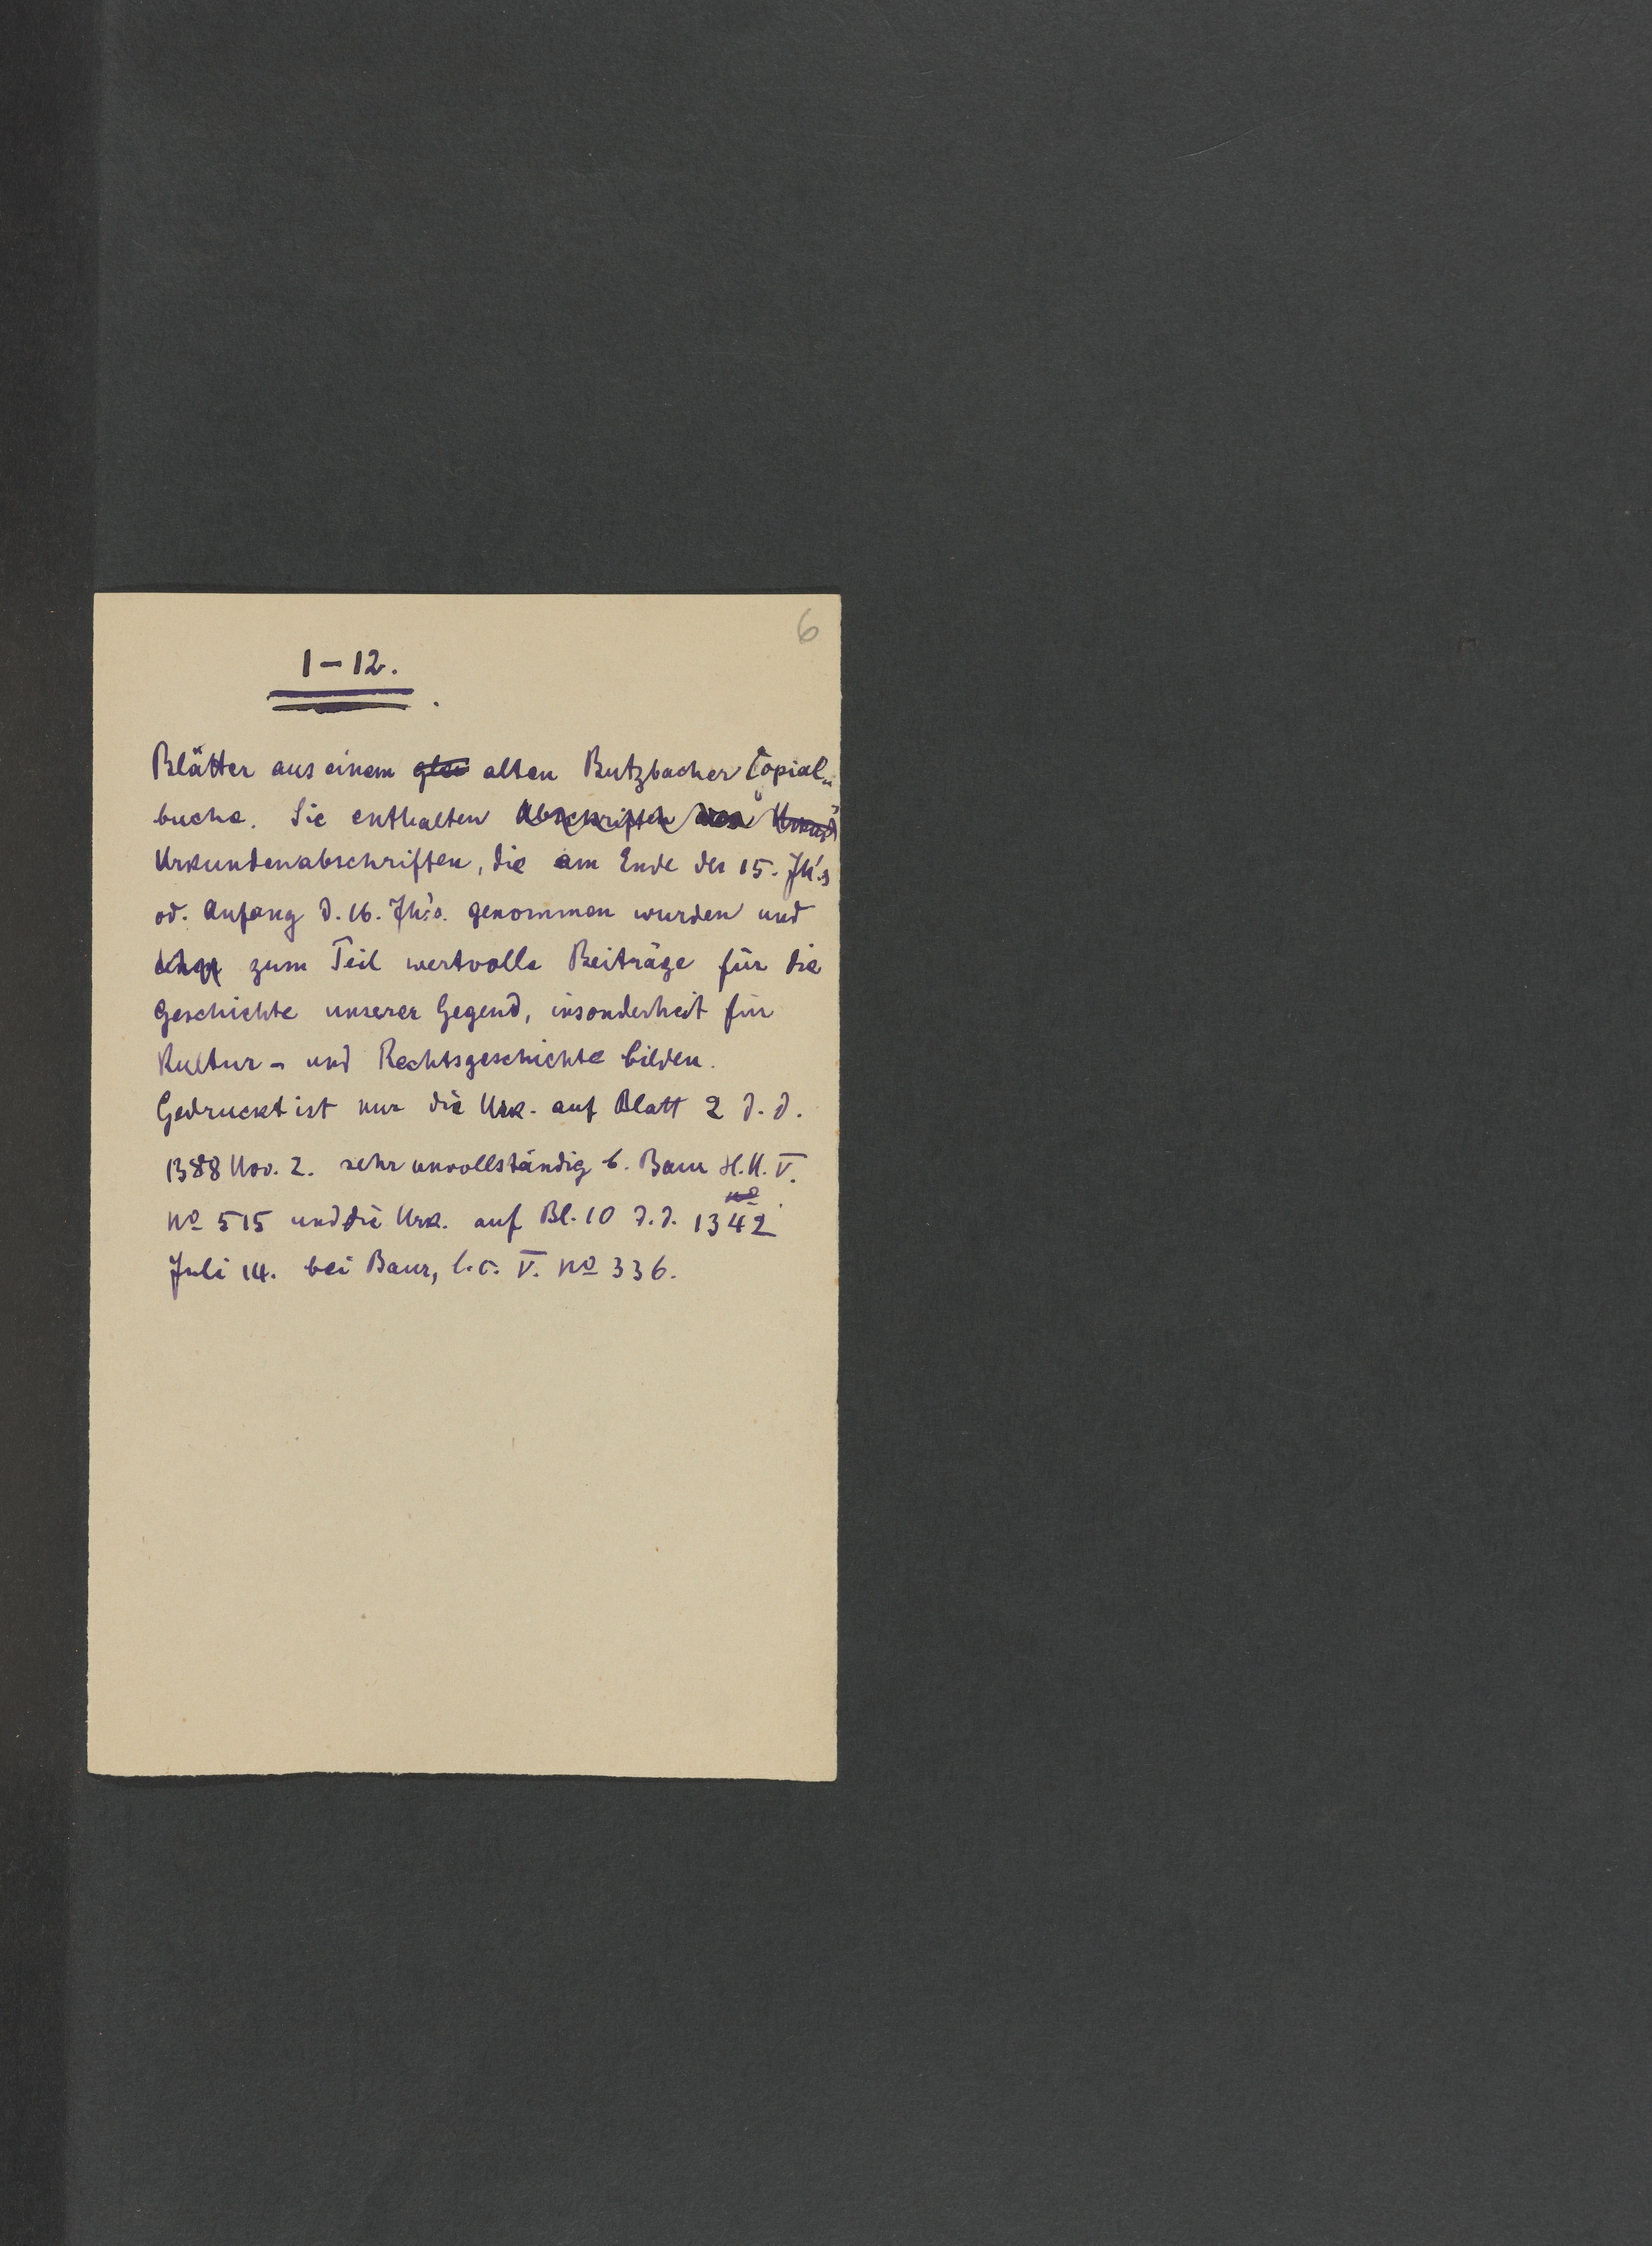 6
1-12.
Blätter aus einem alten Butzbacher Copial-
buche. Sie enthalten Abschriften
Urkundenabschriften, die am Ende des 15. Jh's
od. Anfang d. 16. Jh's. genommen wurden und
zum Teil wertvolle Beiträge für die
Geschichte unserer Gegend, insonderheit für
Kultur- und Rechtsgeschichte bilden.
Gedruckt ist nur die Urk. auf Blatt 2 d. d.
1388 Nov. 2. sehr unvollständig b. Baur H.U. V.
No 515 und die Urk. auf Bl. 10 d. d. 1342
Juli 14. bei Baur, l. c. V. No 336.